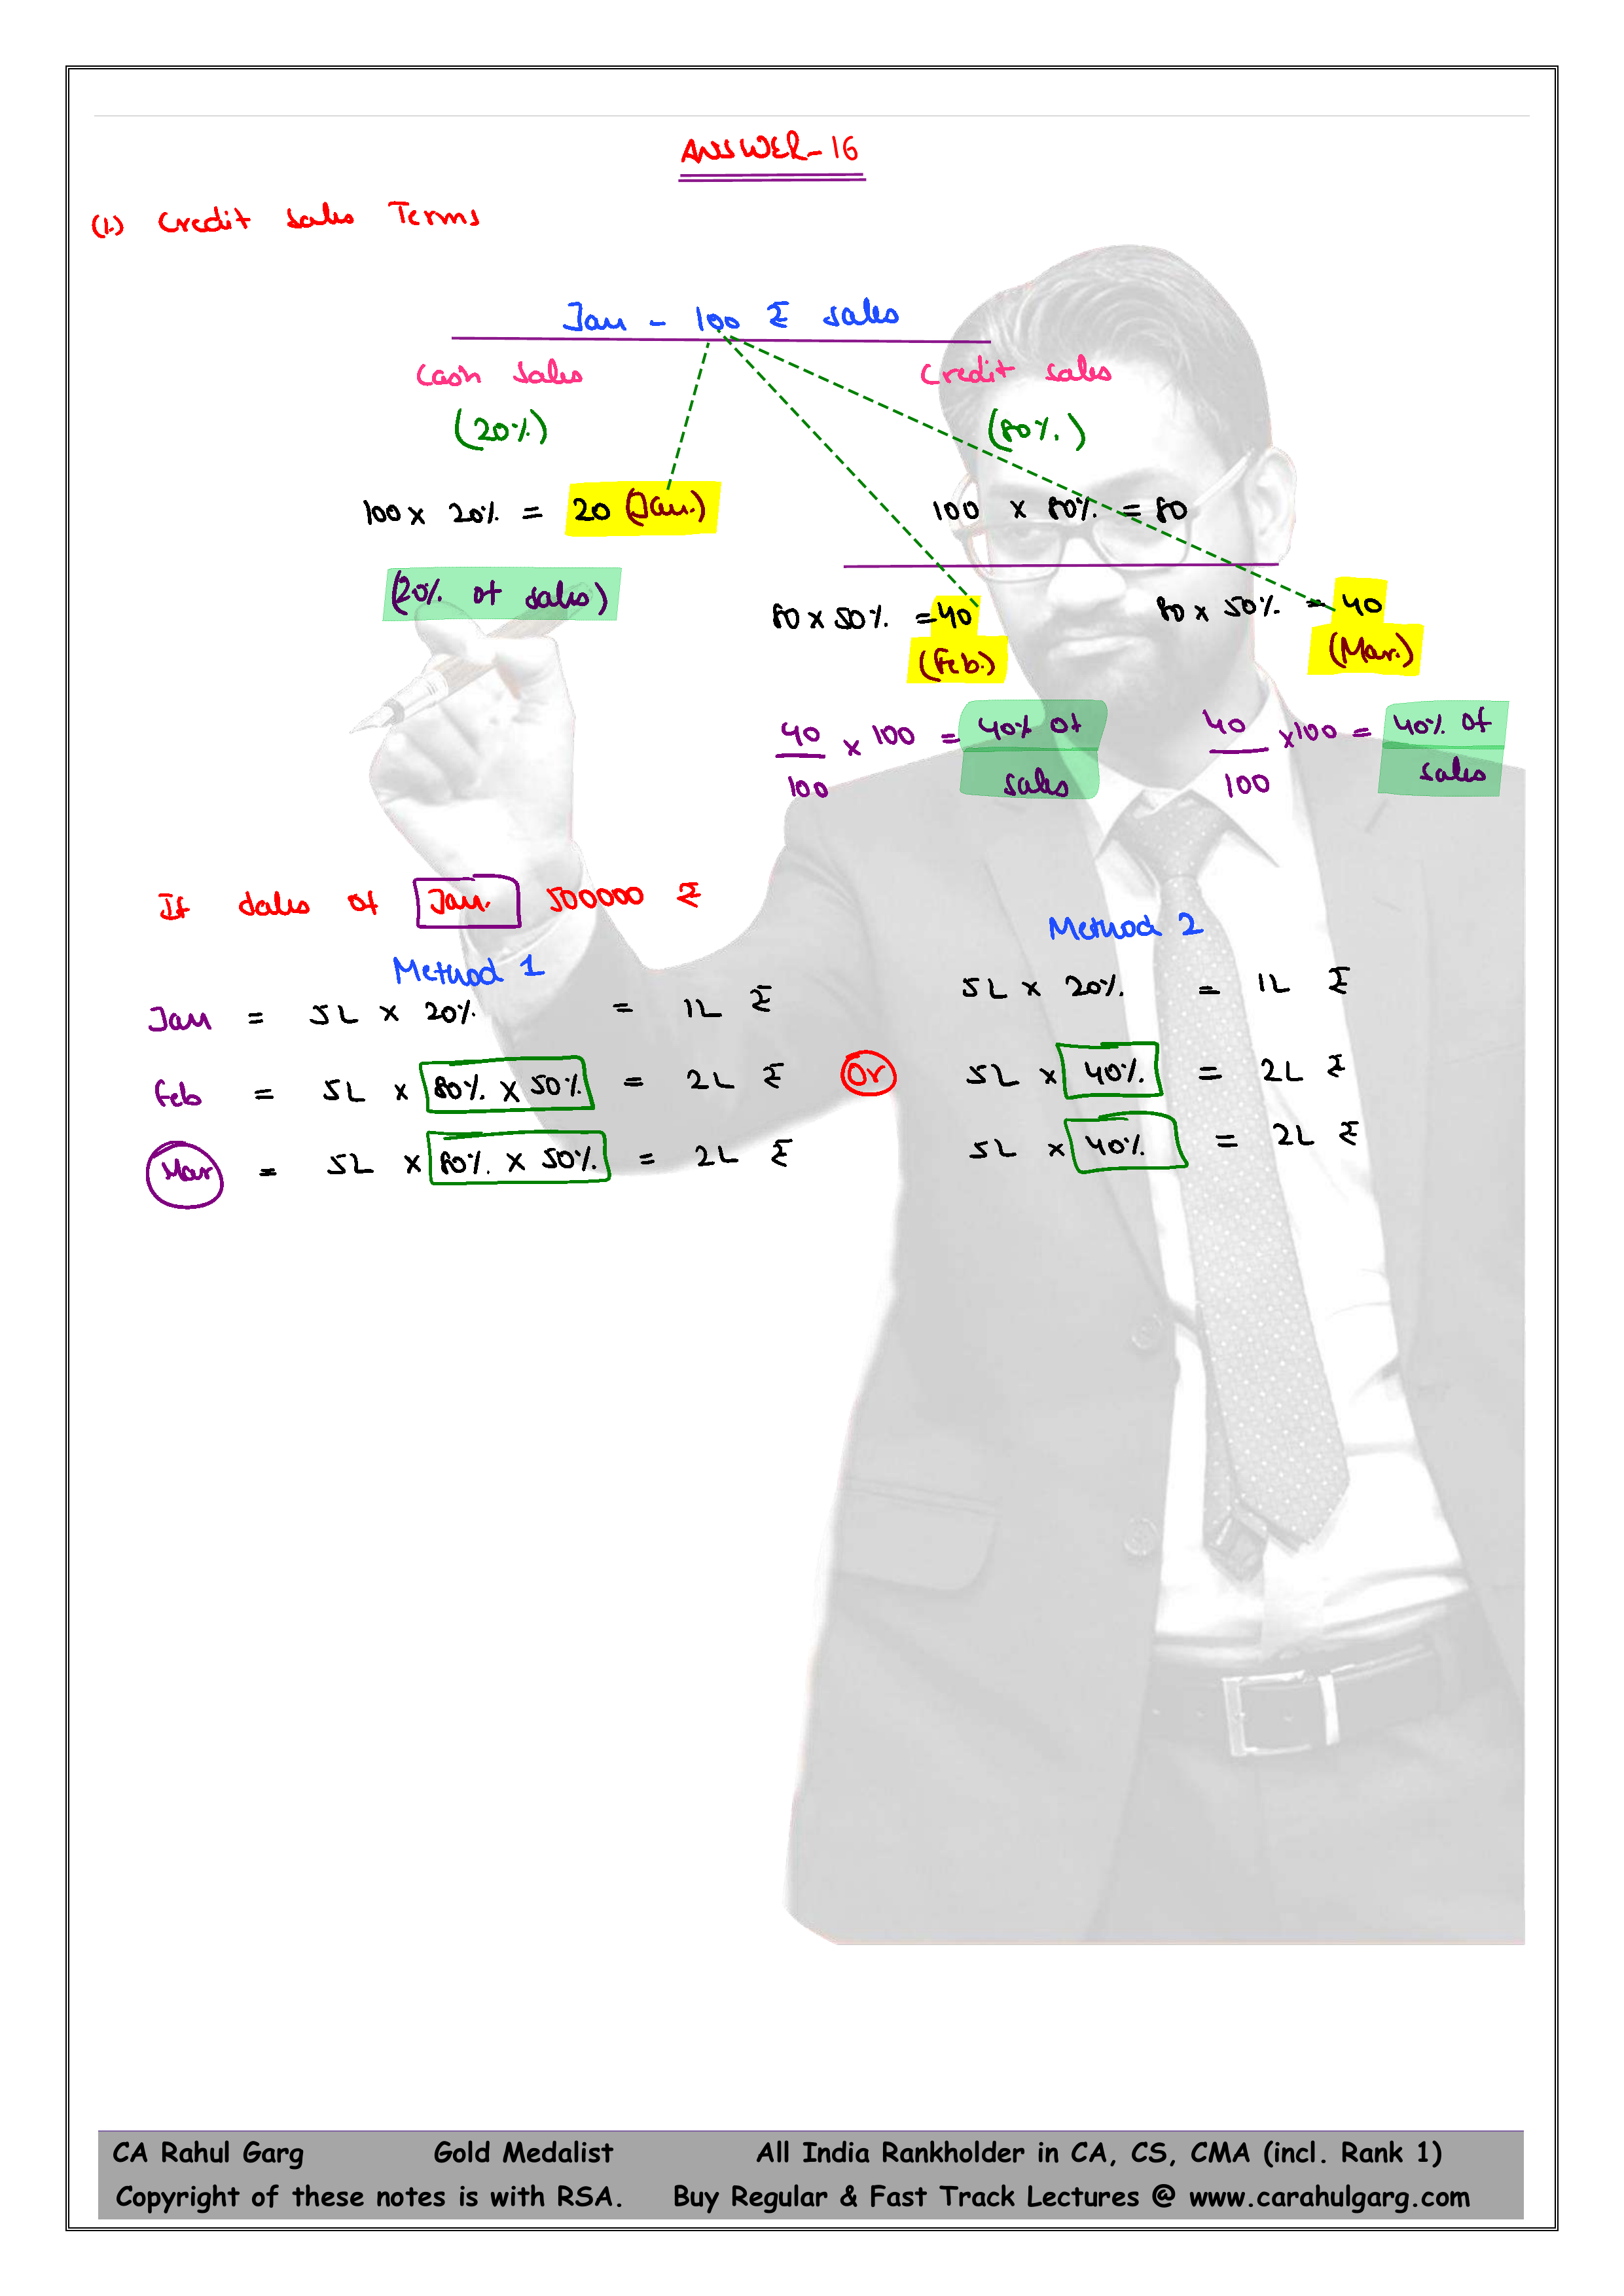 ANSWER-16
(1.) Credit Sales Terms
Jan - 100 ₹ sales
Cash Sales Credit Sales
(20%) (80%.)
100 x 20% = 20 (Jan.) 100 x 80% = 80
(20% of sales)
80 x 50% = 40 80 x 50% = 40
(Feb.) (Mar.)
40/100 x 100 = 40% of sales 40/100 x 100 = 40% of sales
If sales of Jan. 500000 ₹
Method 1 Method 2
Jan = 5L x 20% = 1L ₹ 5L x 20% = 1L ₹
Feb = 5L x 80% x 50% = 2L ₹ Or 5L x 40% = 2L ₹
Mar = 5L x 80% x 50% = 2L ₹ 5L x 40% = 2L ₹
CA Rahul Garg Gold Medalist All India Rankholder in CA, CS, CMA (incl. Rank 1)
Copyright of these notes is with RSA. Buy Regular & Fast Track Lectures @ www.carahulgarg.com